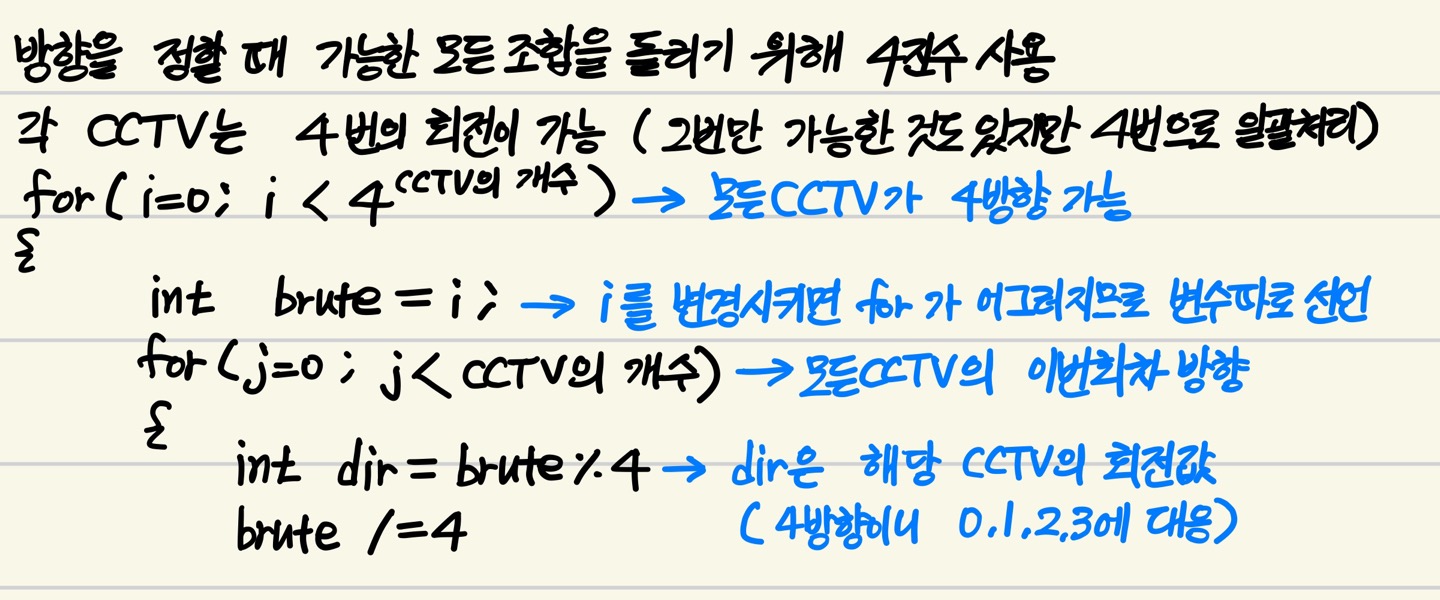 방향을 정할 때 가능한 모든 조합을 돌리기 위해 4진수 사용
각 CCTV는 4번의 회전이 가능 (2번만 가능한 것도 있지만 4번으로 일괄처리)
for( i=0; i < 4^CCTV의 개수) → 모든CCTV가 4방향 가능
{
int brute = i; → i를 변경시키면 for가 어그러지므로 변수따로 선언
for(j=0; j< CCTV의 개수) → 모든CCTV의 이번회차 방향
{
int dir = brute%4 → dir은 해당 CCTV의 회전값
brute /=4 (4방향이니 0.1.2.3에 대응)